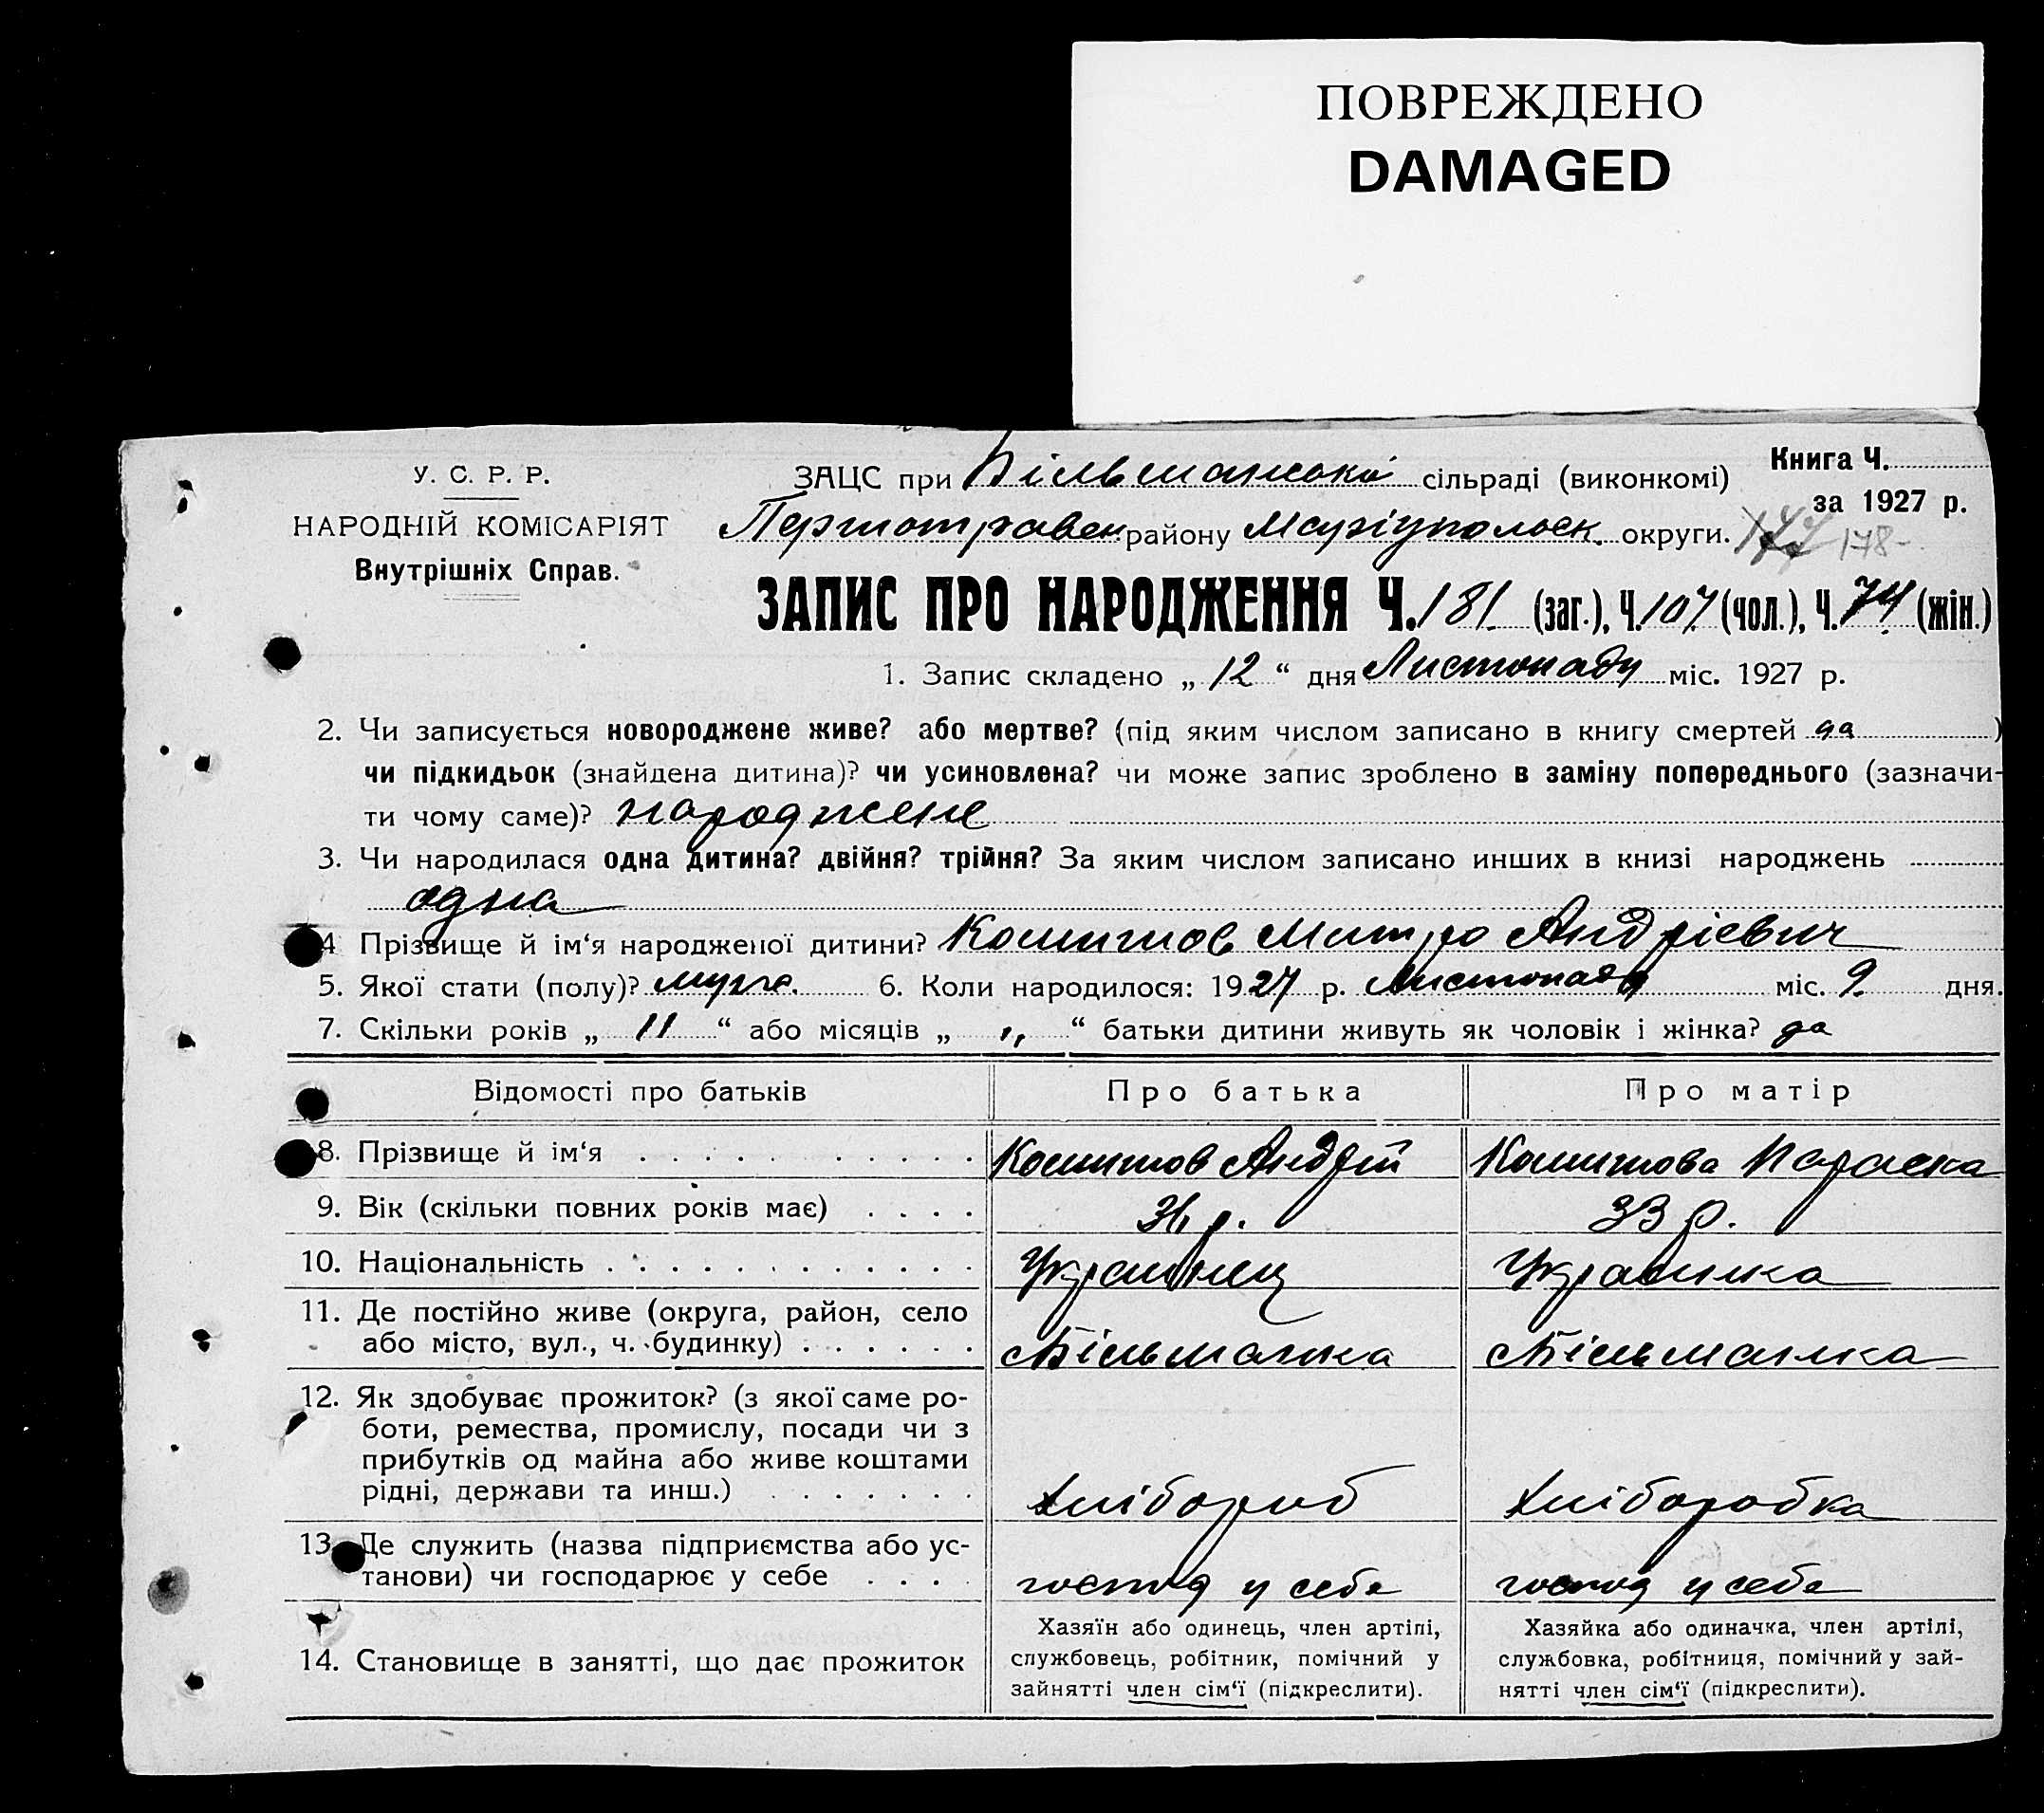 ПОВРЕЖДЕНО
DAMAGED
У. С. Р. Р.
НАРОДНІЙ КОМІСАРІЯТ
Внутрішніх Справ.
ЗАЦС при Більманській сільраді (виконкомі)
Книга Ч.
за 1927 р.
Першотравен району Маріупольск. округи. 177 178-
ЗАПИС ПРО НАРОДЖЕННЯ Ч. 181 (заг.), Ч. 107 (чол.), Ч. 74 (жін.)
1. Запис складено „ 12 “ дня Листопаду міс. 1927 р.
2. Чи записується новороджене живе? або мертве? (під яким числом записано в книгу смертей да )
чи підкидьок (знайдена дитина)? чи усиновлена? чи може запис зроблено в заміну попереднього (зазначи-
ти чому саме)? народжене
3. Чи народилася одна дитина? двійня? трійня? За яким числом записано инших в книзі народжень
одна
4 Прізвище й ім‘я народженої дитини? Митро Андрієвич
5. Якої стати (полу)? муж. 6. Коли народилося: 1927 р. Листопада міс. 9. дня.
7. Скільки років „ 11 “ або місяців „ „ “ батьки дитини живуть як чоловік і жінка? да
Відомості про батьків Про батька Про матір
8. Прізвище й ім‘я Андрій Параска
9. Вік (скільки повних років має) р. 33 р.
10. Національність Украинец Украинка
11. Де постійно живе (округа, район, село
або місто, вул., ч. будинку) Більманка Більманка
12. Як здобуває прожиток? (з якої саме ро-
боти, ремества, промислу, посади чи з
прибутків од майна або живе коштами
рідні, держави та инш.) Хлібороб Хліборобка
13. Де служить (назва підприємства або ус-
танови) чи господарює у себе господ у себе господ у себе
14. Становище в занятті, що дає прожиток
Хазяїн або одинець, член артілі,
службовець, робітник, помічний у
зайнятті член сім‘ї (підкреслити).
Хазяйка або одиначка, член артілі,
службовка, робітниця, помічний у зай-
нятті член сім‘ї (підкреслити).